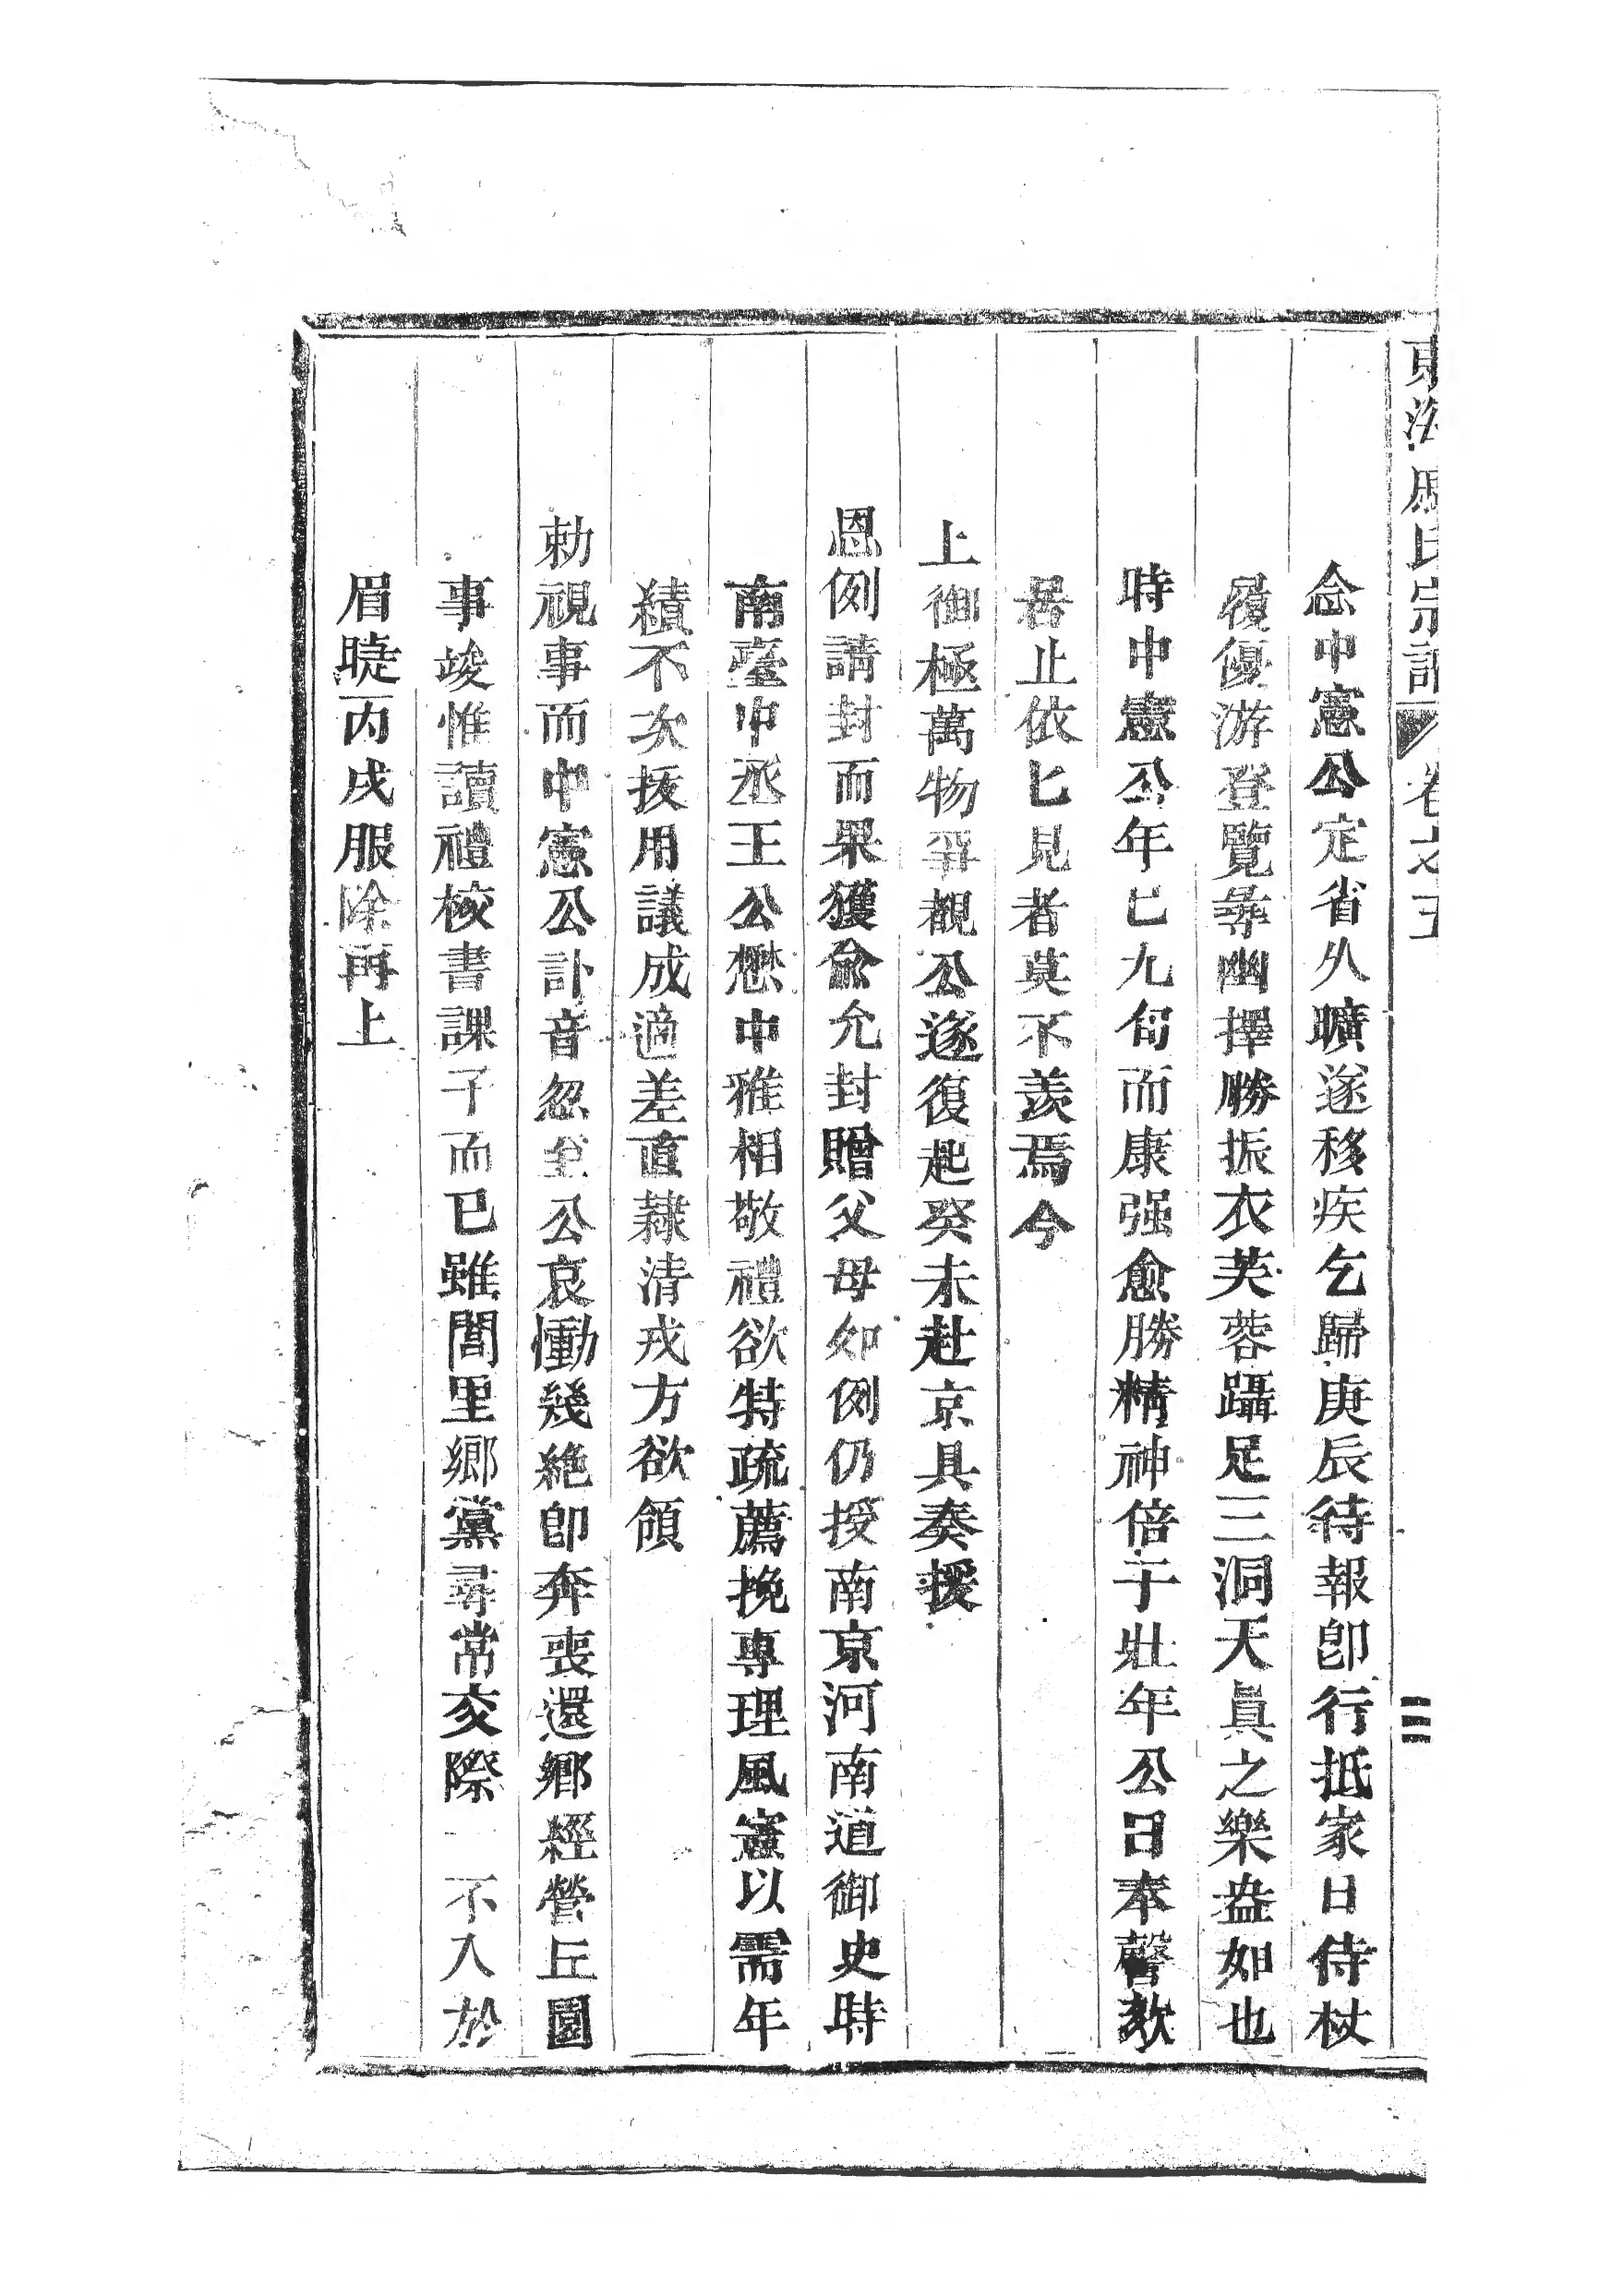 東海屠氏宗譜 卷之五 三
念中憲公定省久曠遂移疾乞歸庚辰待報卽行抵家日侍杖
履優游登覽尋幽擇勝振衣芙蓉躡足三洞天眞之樂盎如也
時中憲公年已九旬而康强愈勝精神倍于壯年公日奉謦欬
居止依匕見者莫不羨焉今
上御極萬物爭覩公遂復起癸未赴京具奏援
恩例請封而果獲兪允封贈父母如例仍授南京河南道御史時
南臺中丞王公懋中雅相敬禮欲特疏薦挽專理風憲以需年
績不次拔用議成適差直隸清戎方欲領
勅視事而中憲公訃音忽至公哀慟幾絶卽奔喪還鄉經營丘園
事竣惟讀禮校書課子而已雖閭里鄉黨尋常交際一不入於
眉睫丙戌服除再上